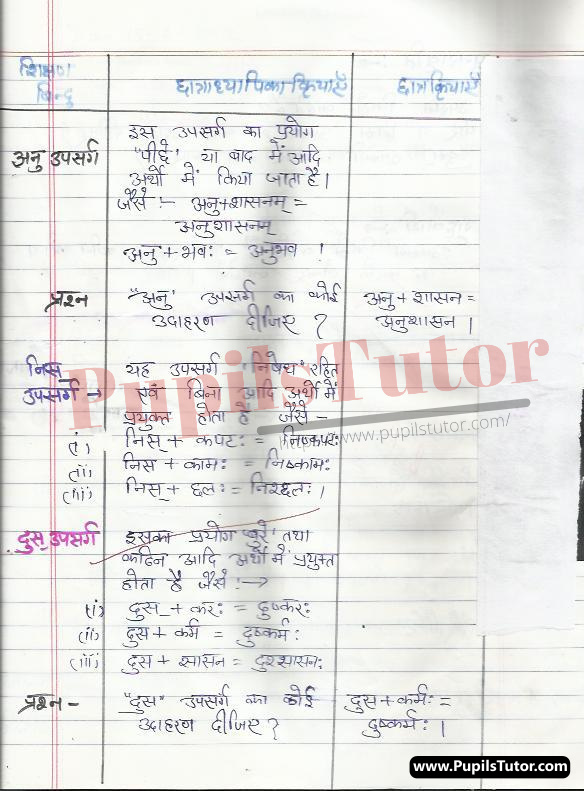 शिक्षण
बिन्दु
छात्राध्यापिका क्रियाएँ
छात्र क्रियाएँ
अनु उपसर्ग
इस उपसर्ग का प्रयोग
"पीछे' या बाद में आदि
अर्थो में किया जाता है।
जैसे :- अनु+शासनम् =
अनुशासनम्
अनु + भवः = अनुभव ।
प्रश्न
"अनु' उपसर्ग का कोई
उदाहरण दीजिए ?
अनु + शासन =
अनुशासन ।
निस
उपसर्ग →
यह उपसर्ग 'निषेध' रहित
एवं बिना आदि अर्थो में
प्रयुक्त होता है जैसे -
(i) निस् + कपटः = निष्कपटः
(ii) निस + कामः = निष्कामः
(iii) निस् + छलः = निश्छलः ।
दुस् उपसर्ग
इसका प्रयोग 'बुरे' तथा
कठिन आदि अर्थो में प्रयुक्त
होता है जैसे :→
(i) दुस् + करः = दुष्करः
(ii) दुस + कर्म = दुष्कर्मः
(iii) दुस + शासन = दुश्शासनः
प्रश्न -
"दुस" उपसर्ग का कोई
उदाहरण दीजिए ?
दुस + कर्मः =
दुष्कर्मः ।
PupilsTutor
https://www.pupilstutor.com/
www.PupilsTutor.com